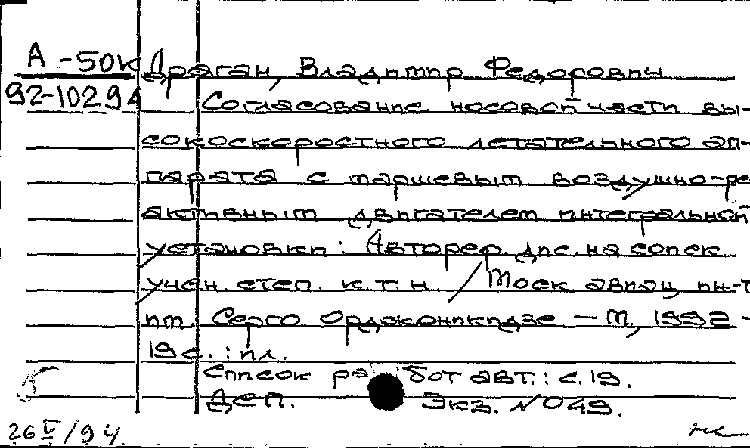 А-50к Драган, Владимир Федорович
92-10294 Согласование носовой части вы-
сокоскоростного летательного ап-
парата с маршевым воздушно-ре
активным двигателем интегральной
установки: Автореф. дис. на соиск.
учен. степ. к.т.н. / Моск авиац. ин-т
им. Серго Орджоникидзе - М, 1992 -
19 с. : ил.
Список работ авт.: с.19.
ДСП. Экз. N 049.
26 V/94.